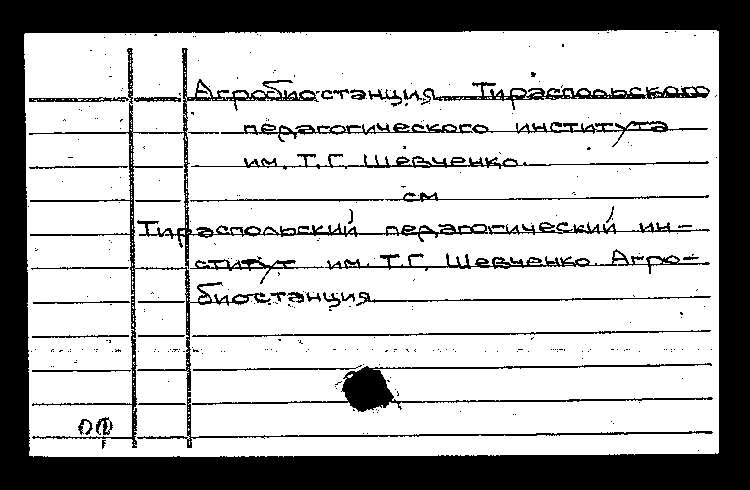 Агробиостанция Тираспольского
педагогического института
им. Т.Г. Шевченко.
см
Тираспольский педагогический ин-
ститут им. Т.Г. Шевченко. Агро-
биостанция.
ОФ